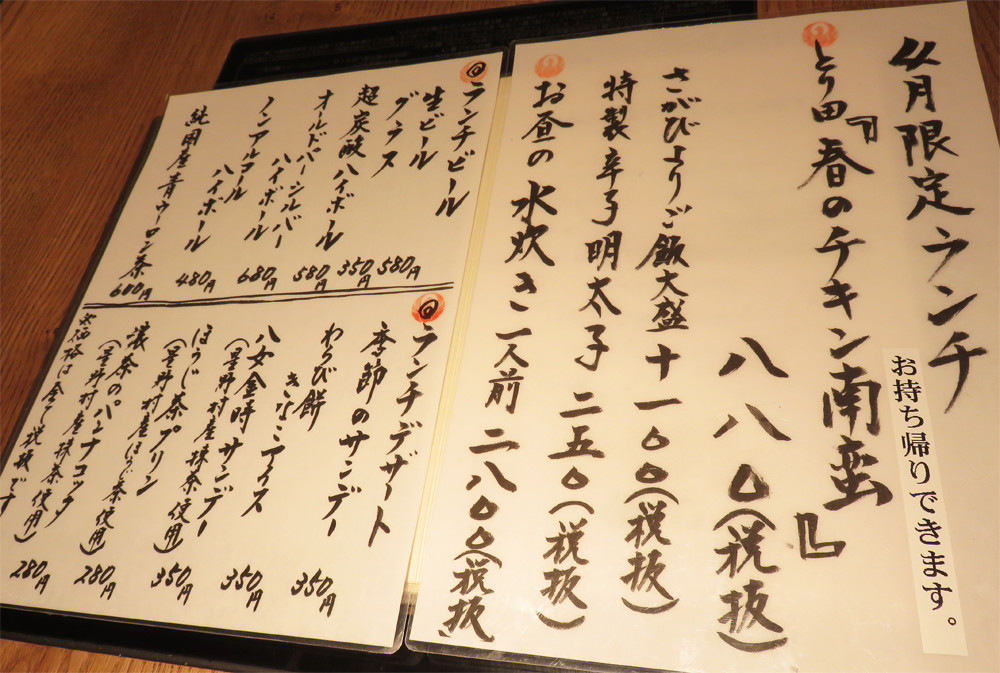 四月限定ランチ
お持ち帰りできます。
とり田『春のチキン南蛮』
八八〇(税抜)
さがびよりご飯大盛 十一〇〇(税抜)
特製辛子明太子 二五〇(税抜)
お昼の水炊き一人前 二八〇〇(税抜)
ランチビール
生ビール 580円
グラス 350円
超炭酸ハイボール 580円
オールドパーシルバー
ハイボール 680円
ノンアルコール
ハイボール 480円
純国産青ウーロン茶 600円
ランチデザート
季節のサンデー 350円
わらび餅
きなこアイス 350円
八女金時サンデー
(星野村産抹茶使用) 350円
ほうじ茶プリン
(星野村産ほうじ茶使用) 280円
濃茶のパンナコッタ
(星野村産抹茶使用) 280円
※価格は全て税抜です